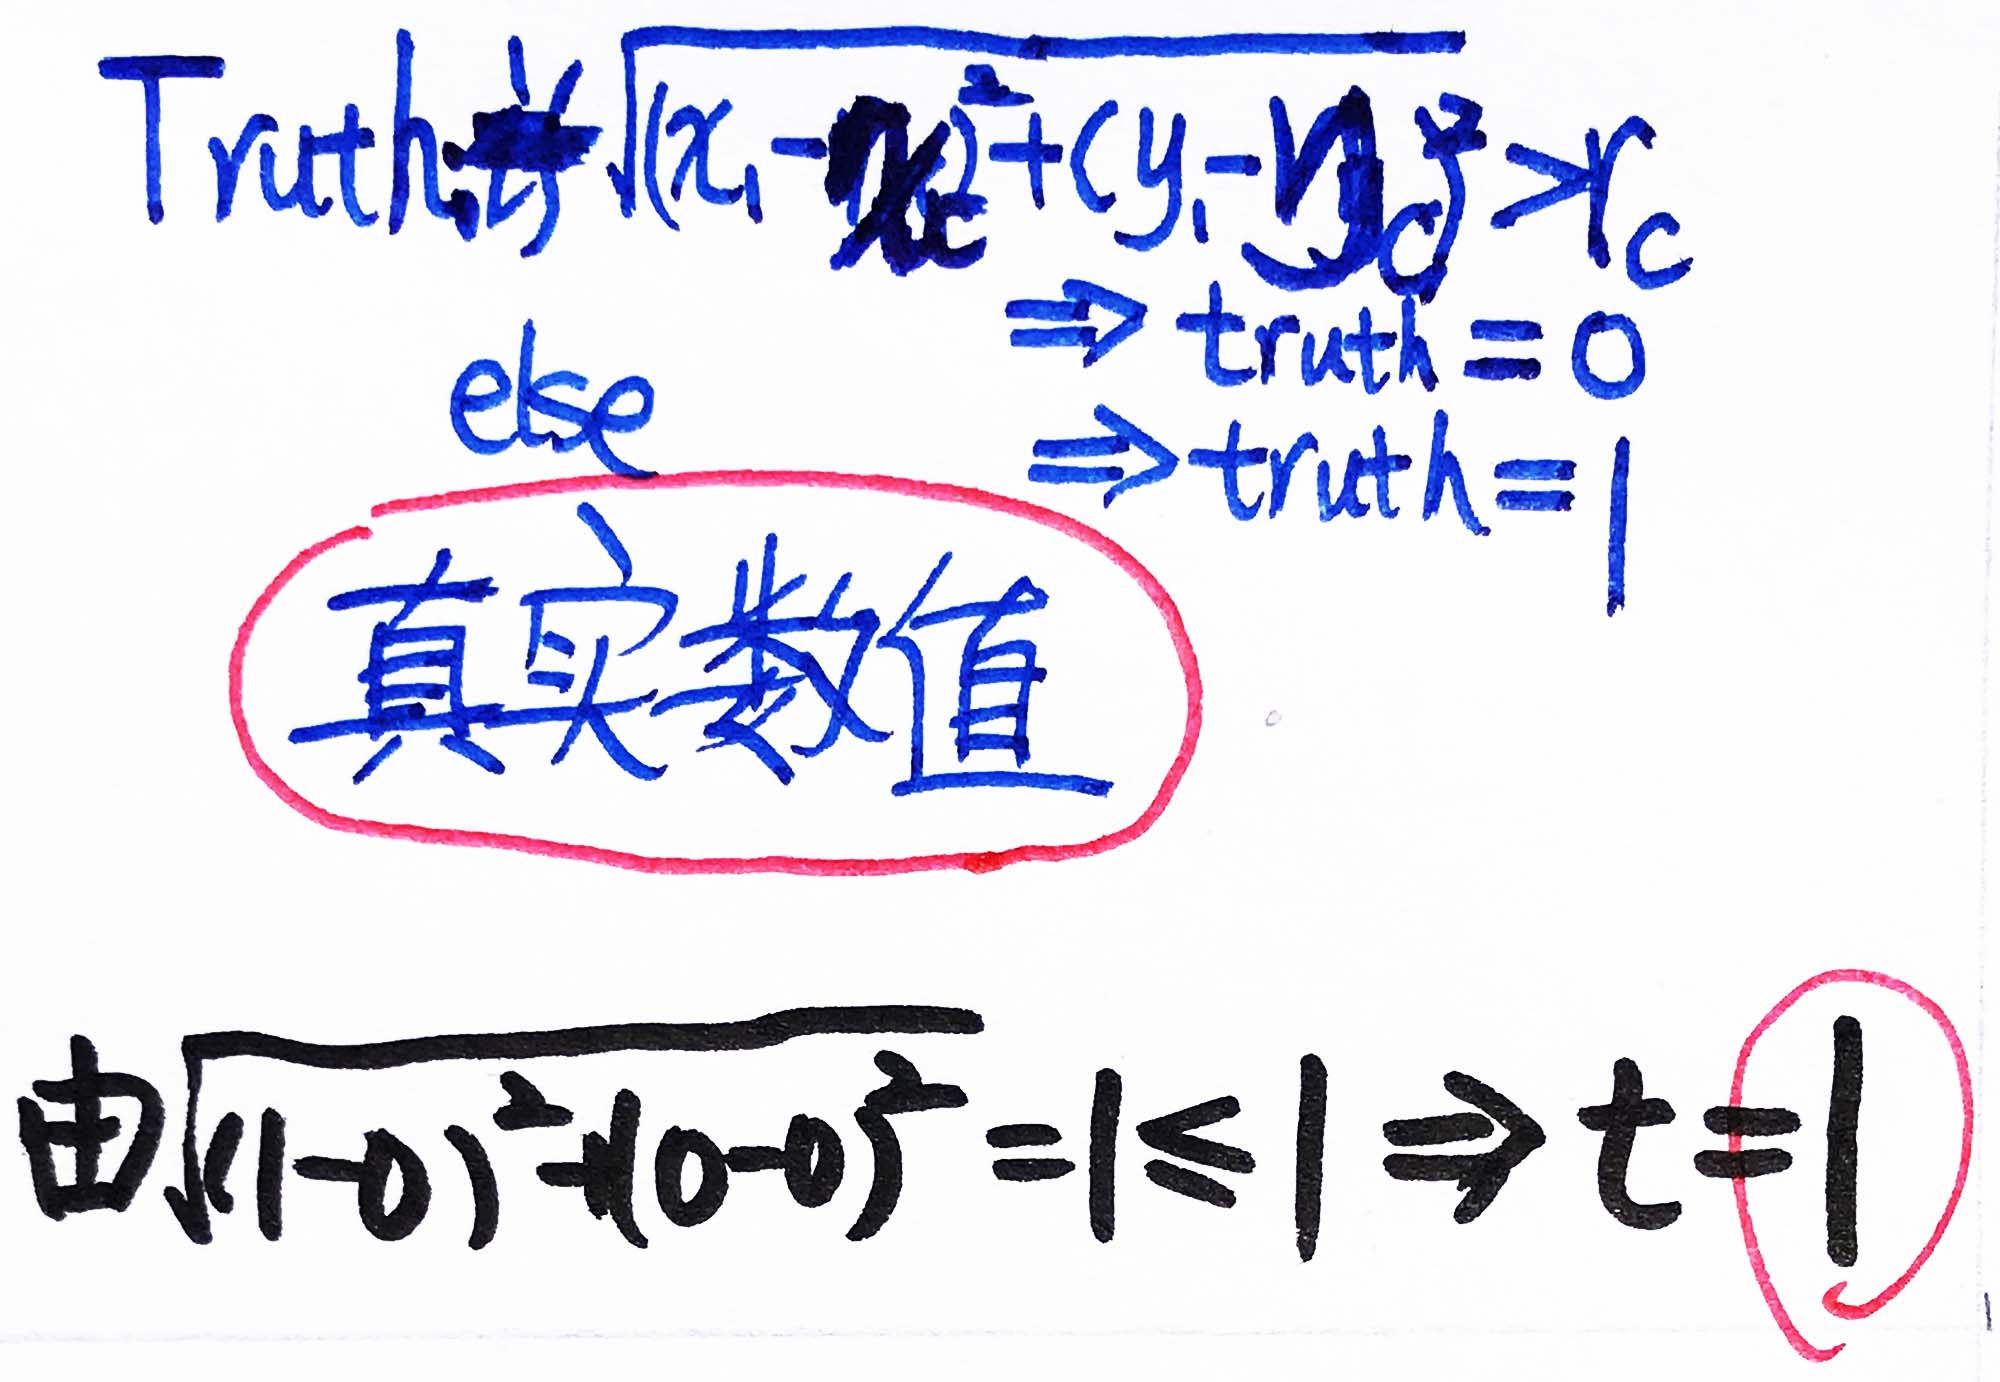 Truth, 当√((x₁-x_c)²+(y₁-y_c)²) > r_c
⇒ truth = 0
else ⇒ truth = 1
真实数值
由√((1-0)²+(0-0)²) = 1 ≤ 1 ⇒ t = 1